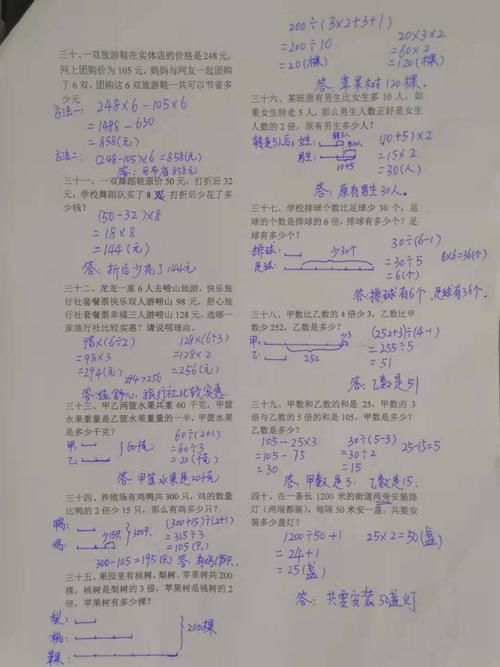 三十、一双旅游鞋在实体店的价格是248元，
网上团购价为105元，妈妈与网友一起团购
了6双，团购这6双旅游鞋一共可以节省多
少元
方法一: 248×6-105×6
=1488-630
=858(元)
方法二: (248-105)×6=858(元)
答:可节省858元
三十一、一双舞蹈鞋原价50元，打折后32
元，学校舞蹈队买了8双，打折后少花了多
少钱？
(50-32)×8
=18×8
=144(元)
答:折后少花了144元
三十二、龙龙一家6人去崂山旅游，快乐旅
行社套餐票快乐双人游崂山98元，舒心旅
行社套餐票幸福三人游崂山128元，选哪一
家旅行社比较实惠？请说明理由。
98×(6÷2) 128×(6÷3)
=98×3 =128×2
=294(元) =256(元)
294>256
答:选舒心旅行社比较实惠
三十三、甲乙两筐水果共重60千克，甲筐
水果重量是乙筐水果重量的一半，甲筐水果
是多少千克？
甲: 60÷(2+1)
乙: 60千克 =60÷3
=20(千克)
答:甲筐水果是20千克
三十四、养殖场有鸡鸭共300只，鸡的数量
比鸭的2倍少15只，那么有鸡多少只？
鸭: (300+15)÷(2+1)
少15只 300只 =315÷3
鸡: =105(只)
300-105=195(只) 答:有鸡195只.
三十五、果园里有桃树，梨树，苹果树共200
棵，桃树是梨树的3倍，苹果树是桃树的2
倍，苹果树有多少棵？
梨:
桃: 200棵
200÷(3×2+3+1) 20×3×2
=200÷10 =60×2
=20(棵) =120(棵)
答:苹果树120棵.
三十六、某班原有男生比女生多10人，如
果女生转走5人，那么男生人数正好是女生
人数的2倍，原有男生多少人？
转走5人后:
男生: 10+5
=15×2
=30(人)
答:原有男生30人.
三十七、学校排球个数比足球少30个，足
球的个数是排球的6倍，排球有多少个？足
球有多少个？
排球: 少30个 30÷(6-1)
足球: =30÷5 6×6=36(个)
=6(个)
答:排球有6个，足球有36个.
三十八、甲数比乙数的4倍少3，乙数比甲
数少252，乙数是多少？
甲: (252+3)÷(4-1)
乙: 252
=51
答:乙数是51
三十九、甲数和乙数的和是25，甲数的3
倍与乙数的5倍的和是105，甲数是多少？
乙数是多少？
105-25×3 30÷(5-3) 25-15=5
=105-75 =30÷2
=30 =15
答:甲数是5，乙数是15.
四十、在一条长1200米的街道两旁安装路
灯（两端都装），每隔50米安一盏，共要安
装多少盏灯？
1200÷50+1 25×2=50(盏)
=24+1
=25(盏)
答:共要安装50盏灯